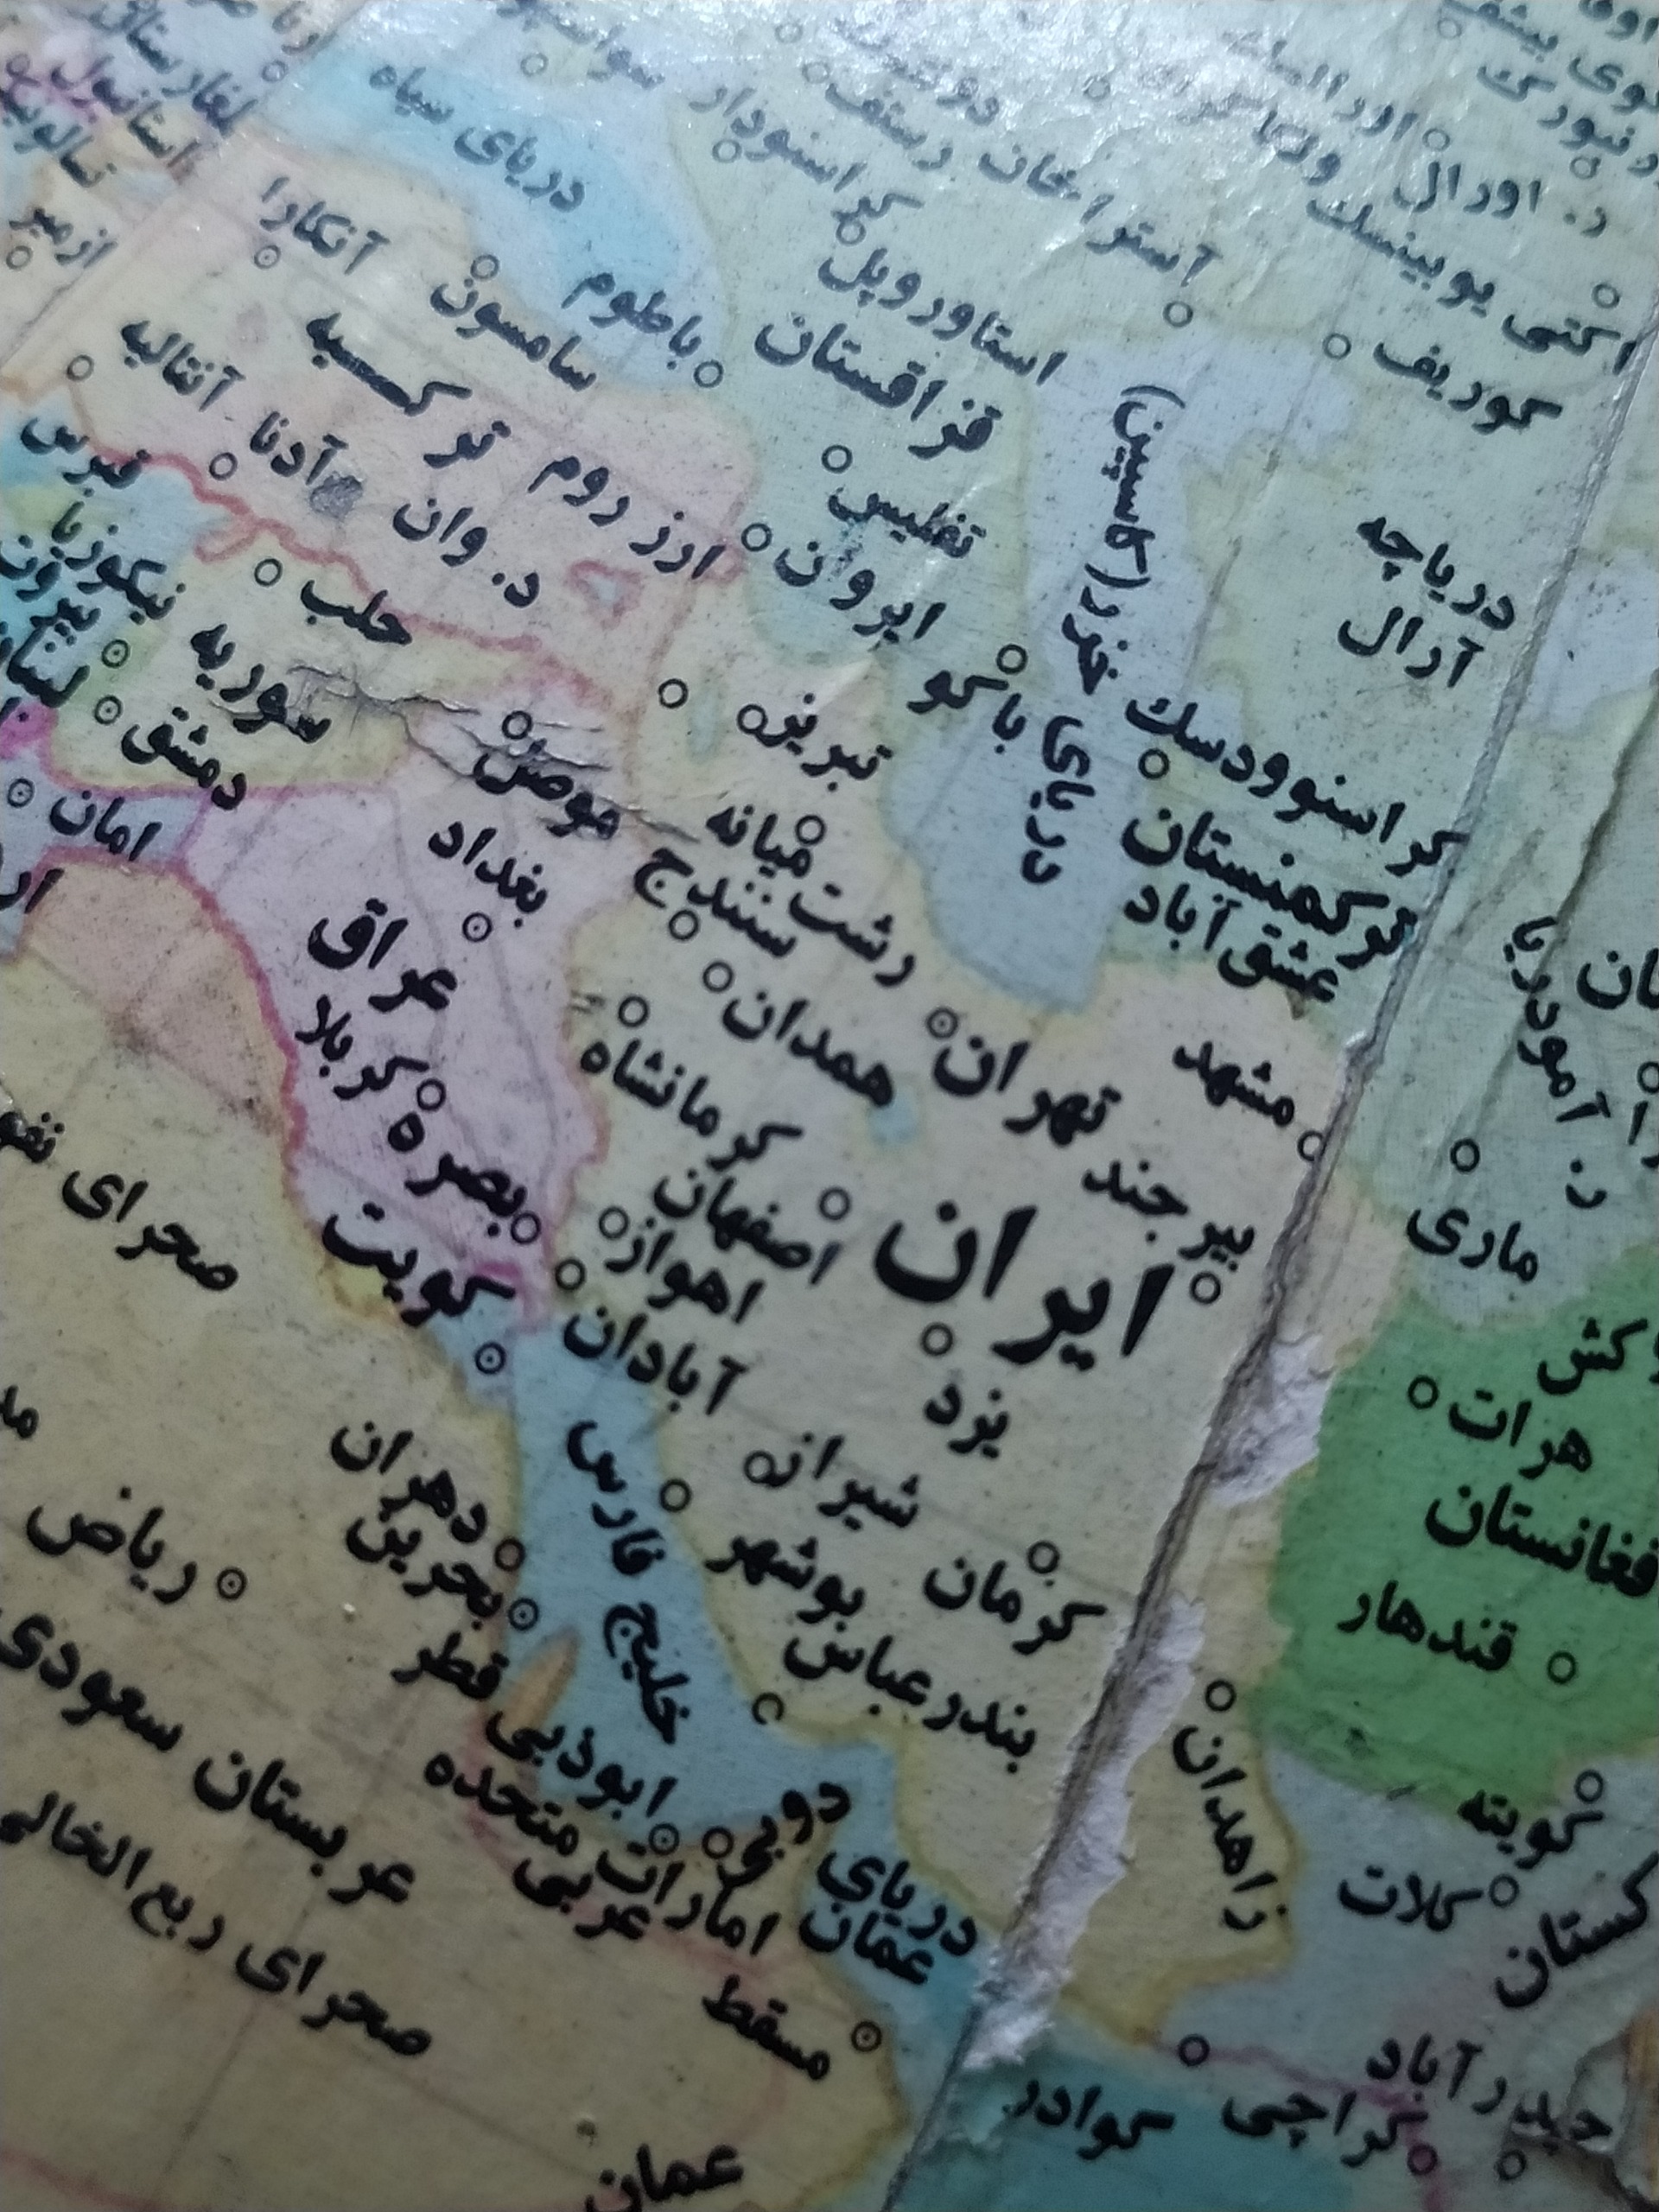 دریای سیاه
استانبول
ازمیر
آنکارا
سامسون
باطوم
کراسنودار
رستف
آستراخان
اورال
د. اورال
اکتی یوبینسک
کوریف
استاوروپل
قزاقستان
ترکسیه
آنتالیه
آدنا
ارز روم
د. وان
قبرس
نیکوزیا
حلب
سوریه
دمشق
امان
تفلیس
ایرون
باکو
دریای خزر (کاسپین)
دریاچه
آرال
کراسنوودسک
ترکمنستان
عشق آباد
آمودریا
ماری
تبریز
میانه
موصل
بغداد
عراق
کربلا
بصره
کویت
رشت
سنندج
همدان
تهران
مشهد
کرمانشاه
بیرجند
اصفهان
اهواز
آبادان
ایران
یزد
شیراز
کرمان
بوشهر
بندرعباس
زاهدان
خلیج فارس
دهران
بحرین
قطر
ریاض
ابوذبی
دوبی
امارات متحده
عربی
عربستان سعودی
صحرای ربع الخالی
دریای
عمان
مسقط
عمان
هرات
قندهار
کویته
کلات
کوادر
کراچی
حیدرآباد